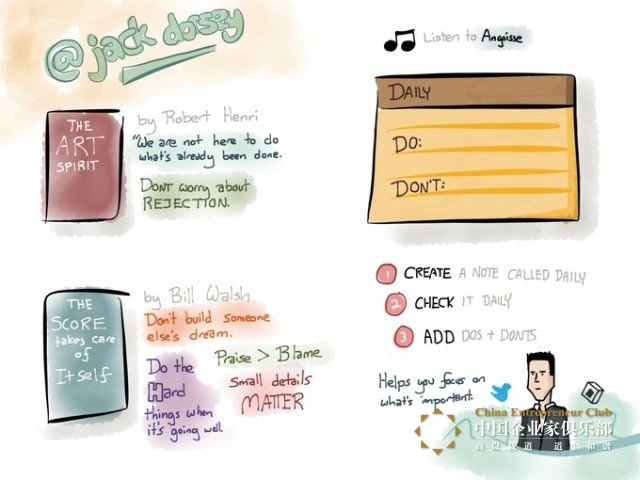 @jack dorsey
THE
ART
SPIRIT
by Robert Henri
"We are not here to do
what's already been done.
DONT worry about
REJECTION.
THE
SCORE
takes care
of
Itself
by Bill Walsh
Don't build someone
else's dream.
Do the
Hard
things when
it's going well
Praise > Blame
Small details
MATTER
Listen to Angoisse
DAILY
DO:
DON'T:
1 CREATE A NOTE CALLED DAILY
2 CHECK IT DAILY
3 ADD DOS + DONTS
Helps you focus on
what's important.
China Entrepreneur Club
中国企业家俱乐部